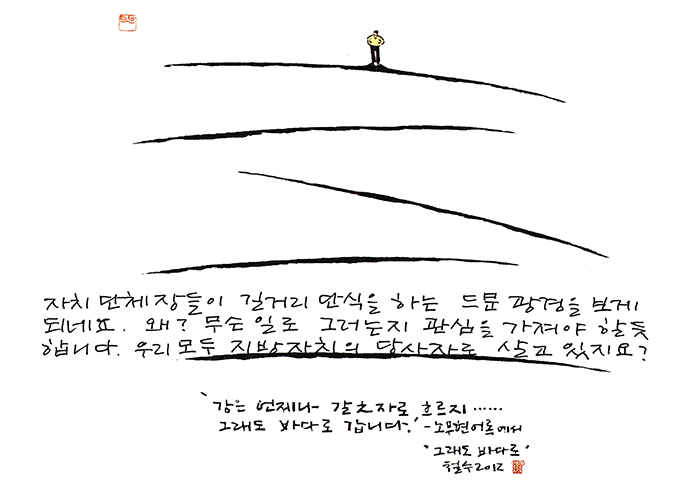 자치 단체장들이 길거리 단식을 하는 드문 광경을 보게
되네요. 왜? 무슨 일로 그러는지 관심을 가져야 할듯
합니다. 우리 모두 지방자치의 당사자로 살고 있지요?
'강은 언제나 갈 之자로 흐르지……
그래도 바다로 갑니다.' -노무현어록에서
'그래도 바다로'
철수2012